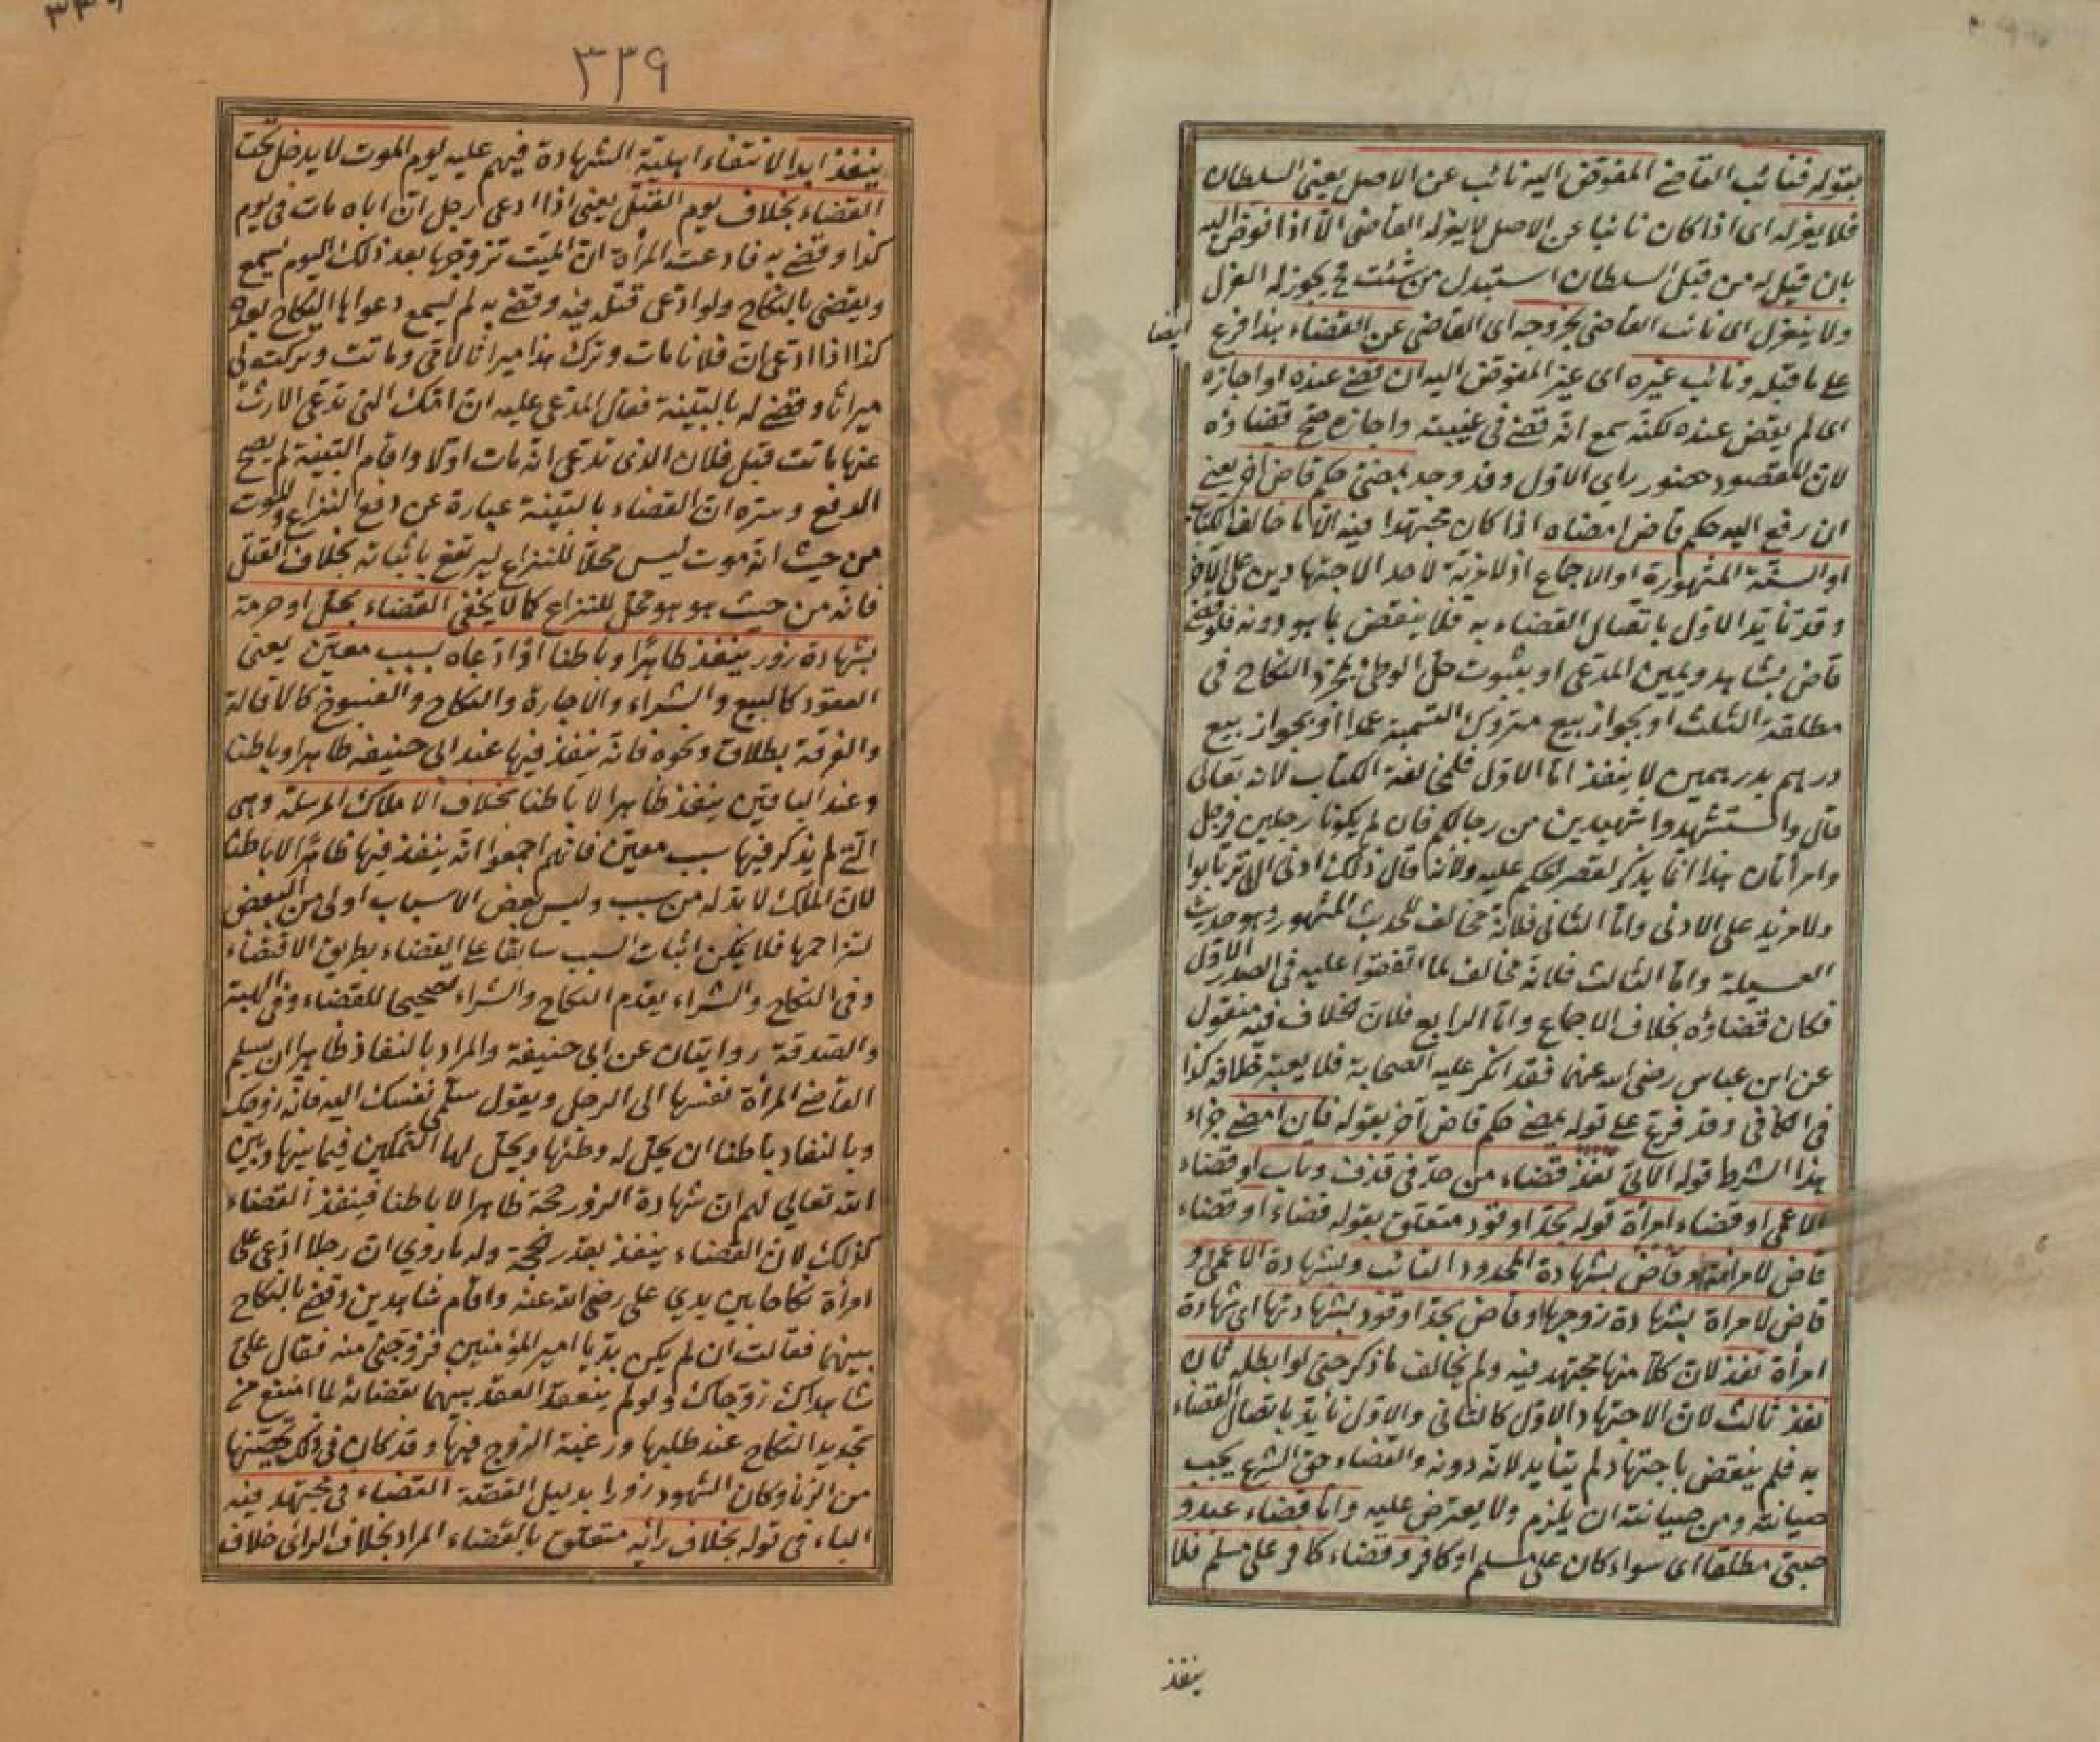 بقوله فنائب القاضي المفوض اليه نائب عن الاصل يعني السلطان
فلا يعزله اى اذا كان نائبا عن الاصل لا يعزله القاضى الا اذا فوض اليه
بان قيل له من قبل السلطان استبدل من شئت فح يجوز له العزل
ولا ينعزل اى نائب القاضى بخروجه اى القاضى عن القضاء هذا فرع
ايضا
على ما قبله ونائب غيره اى غير المفوض اليه ان قضى عنده او اجازه
اى لم يقض عنده لكنه سمع انه قضى فى غيبته واجازه صح قضاؤه
لان المقصود حضور راى الاول وقد وجد يمضى حكم قاض اخر يعني
ان رفع اليه حكم قاض امضاه اذا كان مجتهدا فيه الا ما خالف الكتاب
او السنة المشهورة او الاجماع اذ لا مزية لاحد الاجتهادين على الاخر
وقد تأيد الاول باتصال القضاء به فلا ينقض بما هو دونه فلو قضى
قاض بشاهد ويمين المدعى او بثبوت حل الوطئ بمجرد النكاح فى
مطلقة الثلث او بجواز بيع متروك التسمية عمدا او بجواز بيع
درهم بدرهمين لا ينفذ اما الاول فلمخالفة الكتاب لانه تعالى
قال واستشهدوا شهيدين من رجالكم فان لم يكونا رجلين فرجل
وامرأتان هذا انما يذكر لقصر الحكم عليه ولانه قال ذلك ادنى الا ترتابوا
ولا مزيد على الادنى واما الثانى فلانه مخالف للحديث المشهور وهو حديث
العسيلة واما الثالث فلانه مخالف لما اتفقوا عليه فى الصدر الاول
فكان قضاؤه بخلاف الاجماع واما الرابع فلان الخلاف فيه منقول
عن ابن عباس رضى الله عنهما فقد انكر عليه الصحابة فلا يعتبر خلافه كذا
فى الكافى وقد فرع على قوله يمضى حكم قاض آخر بقوله فان امضى جزاء
هذا الشرط قوله الاتى نفذ قضاء من حد فى قذف وتاب او قضاء
الاعمى او قضاء امرأة قوله بحد او قود متعلق بقوله قضاء او قضاء
قاض لامرأته او قاض بشهادة المحدود التائب وبشهادة الاعمى او
قاض لامرأة بشهادة زوجها او قاض بحد او قود بشهادتها اى شهادة
امرأة نفذ لان كلا منها مجتهد فيه ولم يخالف ما ذكر حتى لو ابطله ثان
نفذ ثالث لان الاجتهاد الاول كالثانى والاول تأيد باتصال القضاء
به فلم ينقض باجتهاد لم يتأيد لانه دونه والقضاء حق الشرع يجب
صيانته ومن صيانته ان يلزم ولا يعترض عليه واما قضاء عبد و
صبى مطلقا اى سواء كان على مسلم او كافر وقضاء كافر على مسلم فلا
ينفذ
٣٣٩
ينفذ ابدا لانتفاء اهلية الشهادة فيهم عليه يوم الموت لا يدخل تحت
القضاء بخلاف يوم القتل يعنى اذا ادعى رجل ان اباه مات فى يوم
كذا وقضى به فادعت امرأة ان الميت تزوجها بعد ذلك اليوم يسمع
ويقضى بالنكاح ولو ادعى قتله فيه وقضى به لم يسمع دعواها النكاح بعده
كذا اذا ادعى ان فلانا مات وترك هذا ميراثا لامى وماتت وتركت لى
ميراثا وقضى له بالبينة فقال المدعى عليه ان امك التى تدعى الارث
عنها ماتت قبل فلان الذى تدعى انه مات اولا واقام البينة لم يصح
الدفع وسره ان القضاء بالبينة عبارة عن دفع النزاع والموت
من حيث انه موت ليس محلا للنزاع ليرتفع باثباته بخلاف القتل
فانه من حيث هو هو محل للنزاع كما لا يخفى القضاء بحل او حرمة
بشهادة زور ينفذ ظاهرا وباطنا اذا ادعاه بسبب معين يعنى
العقود كالبيع والشراء والاجارة والنكاح والفسوخ كالاقالة
والفرقة بطلاق ونحوه فانه ينفذ فيها عند ابى حنيفه ظاهرا وباطنا
وعند الباقين ينفذ ظاهرا لا باطنا بخلاف الاملاك المرسلة وهى
التى لم يذكر فيها سبب معين فانهم اجمعوا انه ينفذ فيها ظاهرا لا باطنا
لان الملك لا بد له من سبب وليس بعض الاسباب اولى من البعض
لتزاحمها فلا يمكن اثبات السبب سابقا على القضاء بطريق الاقتضاء
وفى النكاح والشراء يقدم النكاح والشراء تصحيحا للقضاء وفى الهبة
والصدقة روايتان عن ابى حنيفة والمراد بالنفاذ ظاهرا ان يسلم
القاضى المرأة نفسها الى الرجل ويقول سلمى نفسك اليه فانه زوجك
وبالنفاد باطنا ان يحل له وطئها ويحل لها التمكين فيما بينها وبين
الله تعالى لهم ان شهادة الزور حجة ظاهرا لا باطنا فينفذ القضاء
كذلك لان القضاء ينفذ بقدر الحجة وله ما روي ان رجلا ادعى على
امرأة نكاحا بين يدي على رضى الله عنه واقام شاهدين وقضى بالنكاح
بينهما فقالت ان لم يكن بد يا امير المؤمنين فزوجنى منه فقال على
شاهداك زوجاك ولو لم ينعقد العقد بينهما بقضائه لما امتنع من
تجديد النكاح عند طلبها ورغبة الزوج فيها وقد كان فى ذلك تحصينها
من الزنا وكان الشهود زورا بدليل القصة القضاء فى مجتهد فيه
الباء فى قوله بخلاف رأيه متعلق بالقضاء المراد بخلاف الرأى خلاف